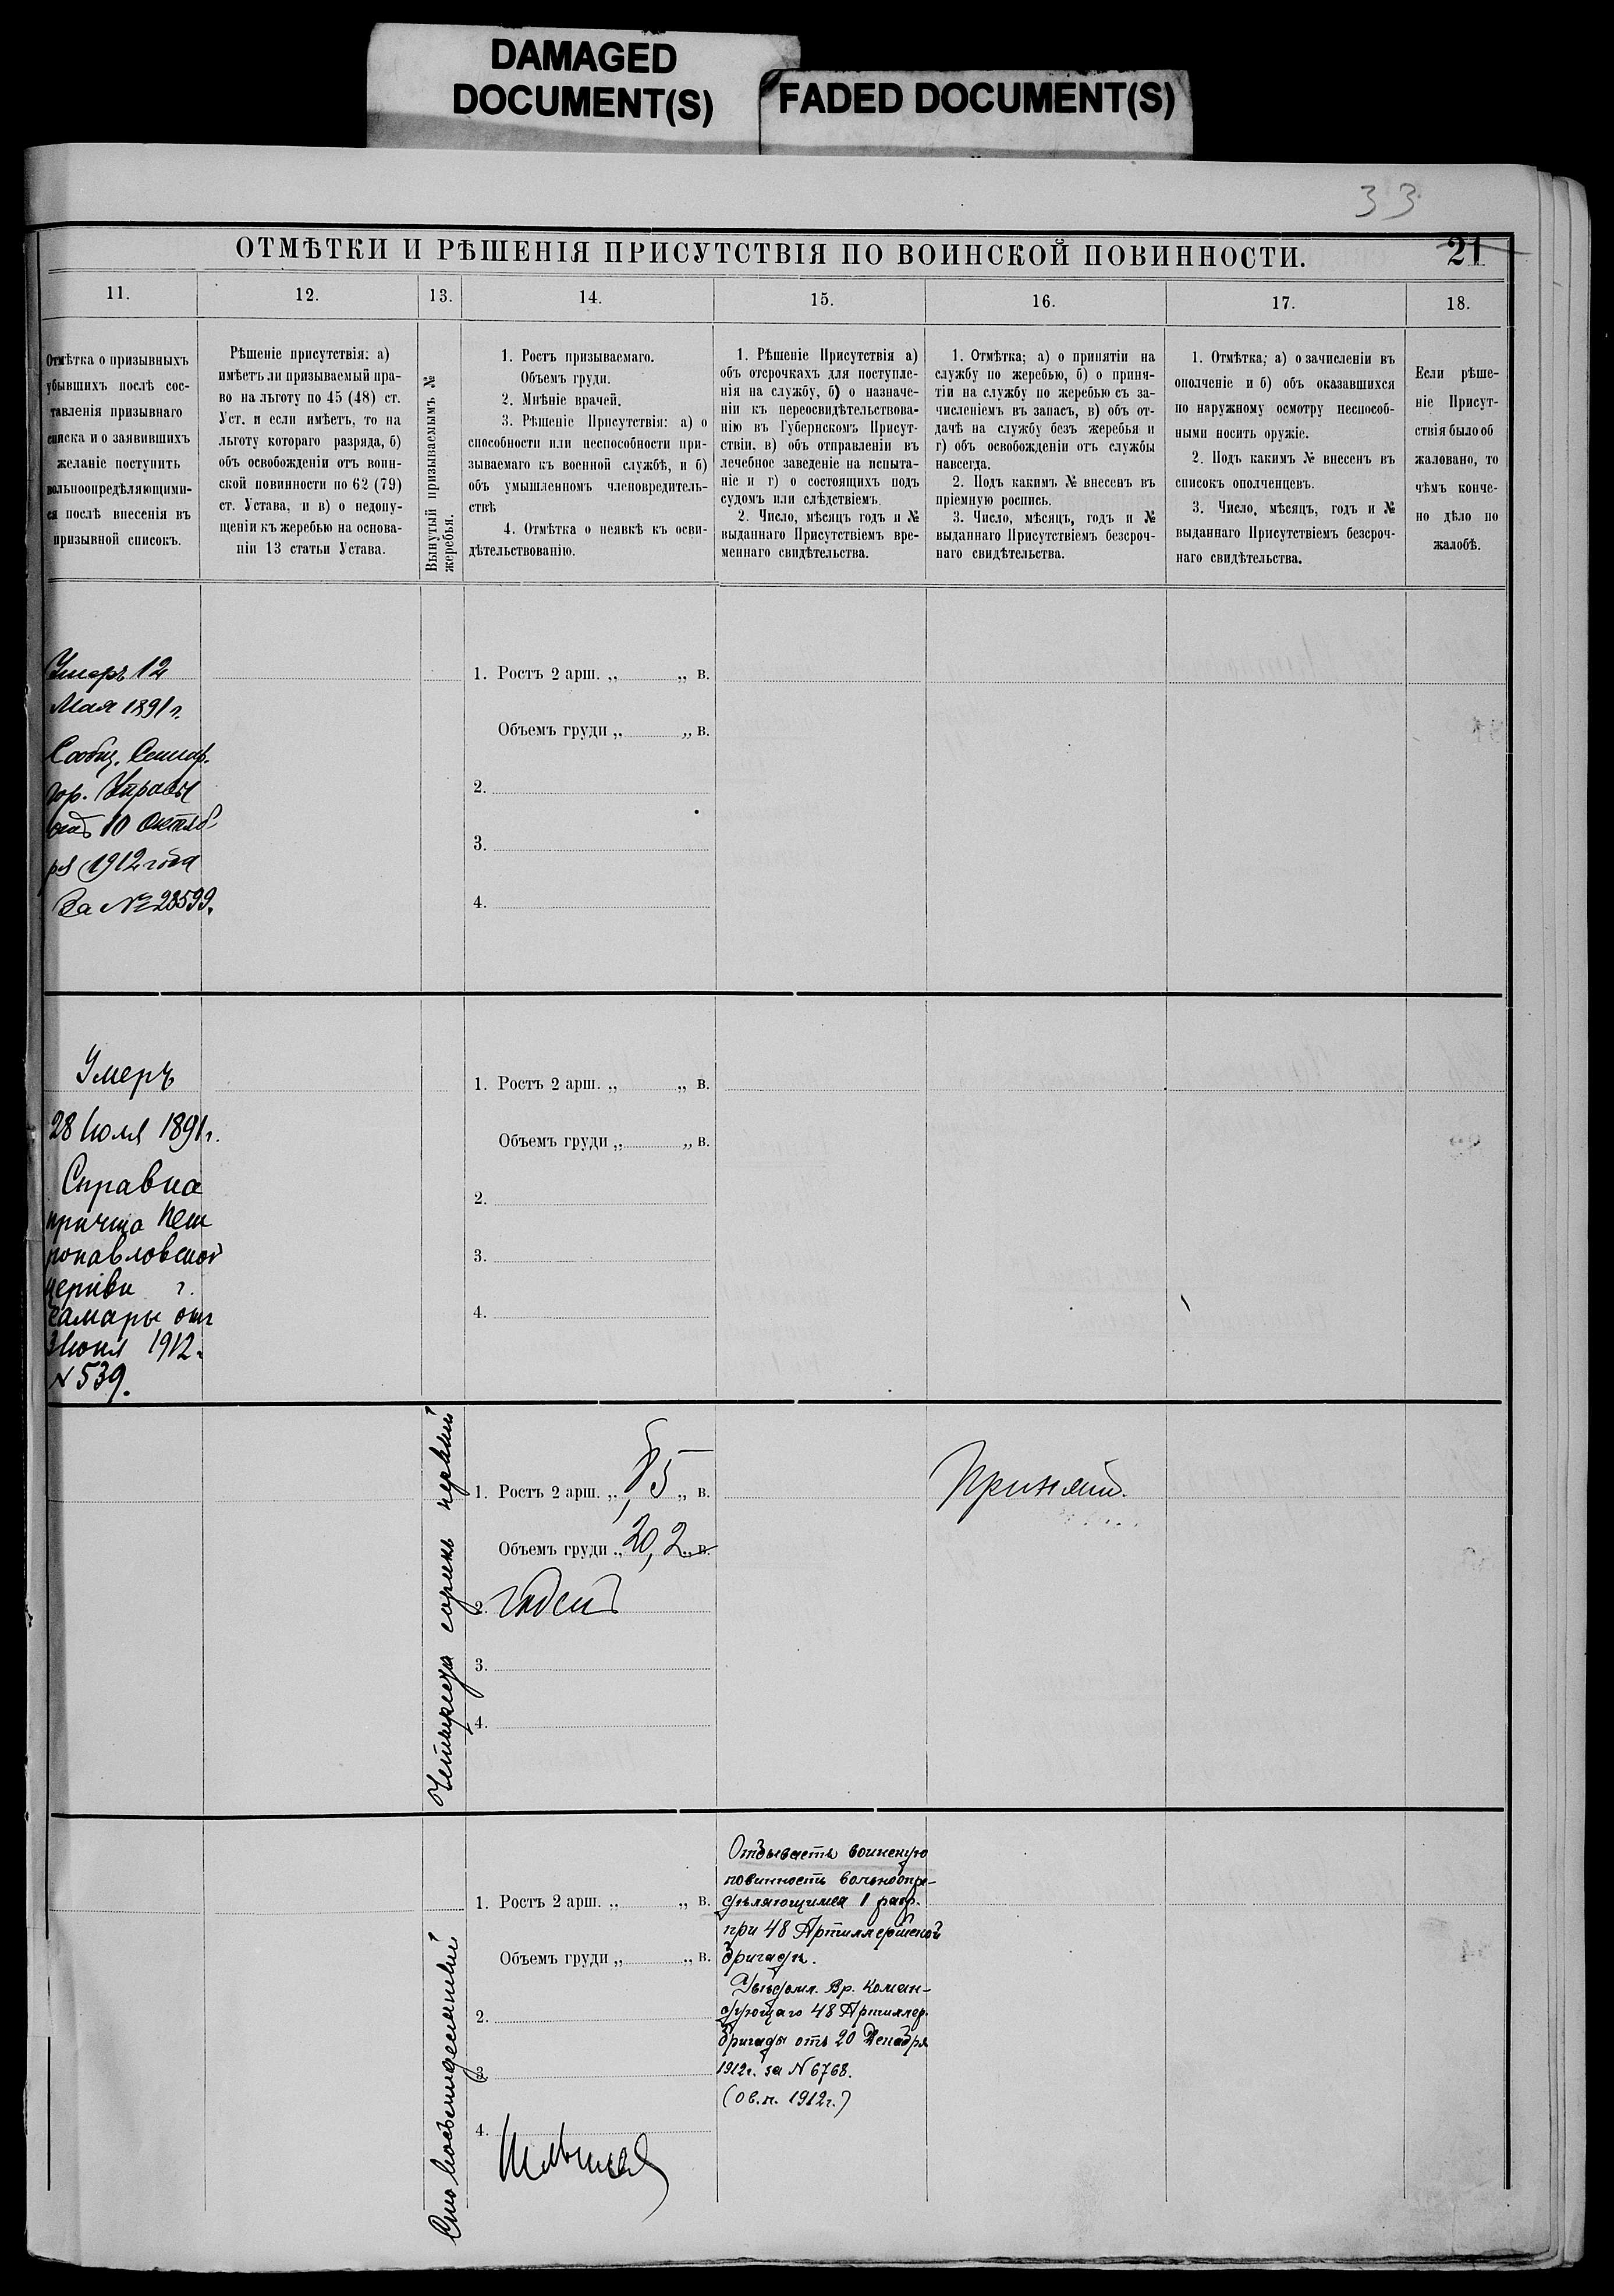 DAMAGED
DOCUMENT(S)
FADED DOCUMENT(S)
33
ОТМѢТКИ И РѢШЕНІЯ ПРИСУТСТВІЯ ПО ВОИНСКОЙ ПОВИННОСТИ.
21
11.
12.
13.
14.
15.
16.
17.
18.
Отмѣтка о призывныхъ
убывшихъ послѣ сос-
тавленія призывнаго
списка и о заявившихъ
желаніе поступить
вольноопредѣляющими-
ся послѣ внесенія въ
призывной списокъ.
Рѣшеніе присутствія: а)
имѣетъ ли призываемый пра-
во на льготу по 45 (48) ст.
Уст. и если имѣетъ, то на
льготу котораго разряда, б)
объ освобожденіи отъ воин-
ской повинности по 62 (79)
ст. Устава, и в) о недопу-
щеніи къ жеребью на основа-
ніи 13 статьи Устава.
Вынутый призываемымъ №
жеребья.
1. Ростъ призываемаго.
Объемъ груди.
2. Мнѣніе врачей.
3. Рѣшеніе Присутствія: а) о
способности или неспособности при-
зываемаго къ военной службѣ, и б)
объ умышленномъ членовредитель-
ствѣ
4. Отмѣтка о неявкѣ къ осви-
дѣтельствованію.
1. Рѣшеніе Присутствія а)
объ отсрочкахъ для поступле-
нія на службу, б) о назначе-
ніи къ переосвидѣтельствова-
нію въ Губернскомъ Присут-
ствіи. в) объ отправленіи въ
лечебное заведеніе на испыта-
ніе и г) о состоящихъ подъ
судомъ или слѣдствіемъ.
2. Число, мѣсяцъ годъ и №
выданнаго Присутствіемъ вре-
меннаго свидѣтельства.
1. Отмѣтка; а) о принятіи на
службу по жеребью, б) о приня-
тіи на службу по жеребью съ за-
численіемъ въ запасъ, в) объ от-
дачѣ на службу безъ жеребья и
г) объ освобожденіи отъ службы
навсегда.
2. Подъ какимъ № внесенъ въ
пріемную роспись.
3. Число, мѣсяцъ, годъ и №
выданнаго Присутствіемъ безсроч-
наго свидѣтельства.
1. Отмѣтка; а) о зачисленіи въ
ополченіе и б) объ оказавшихся
по наружному осмотру неспособ-
ными носить оружіе.
2. Подъ какимъ № внесенъ въ
списокъ ополченцевъ.
3. Число, мѣсяцъ, годъ и №
выданнаго Присутствіемъ безсроч-
наго свидѣтельства.
Если рѣше-
ніе Присут-
ствія было об
жаловано, то
чѣмъ конче-
но дѣло по
жалобѣ.
Умеръ 12
Мая 1891 г.
Сообщ. Самар.
Гор. Управы
отъ 10 Октяб-
ря 1912 года
За № 28599.
1. Ростъ 2 арш. „ „ в.
Объемъ груди „ „ в.
2.
3.
4.
Умеръ
28 Іюля 1891 г.
Справка
причта Пет
ропавловской
церкви г.
Самары отъ
3 Іюня 1912 г.
№ 539.
1. Ростъ 2 арш. „ „ в.
Объемъ груди „ „ в.
2.
3.
4.
Четыреста сорокъ первый
1. Ростъ 2 арш. „ 85 „ в.
Объемъ груди „ 20,2 „ в.
2. Годенъ
3.
4.
Принятъ.
Сто восьмидесятый
1. Ростъ 2 арш. „ „ в.
Объемъ груди „ „ в.
2.
3.
4.
Отбываетъ воинскую
повинность вольноопре-
дѣляющимся 1 разр.
при 48 Артиллерійской
бригадѣ.
Увѣдомл. Вр. Коман-
дующаго 48 Артиллер.
бригады отъ 20 Декабря
1912 г. за № 6768.
(Ов. п. 1912 г.)